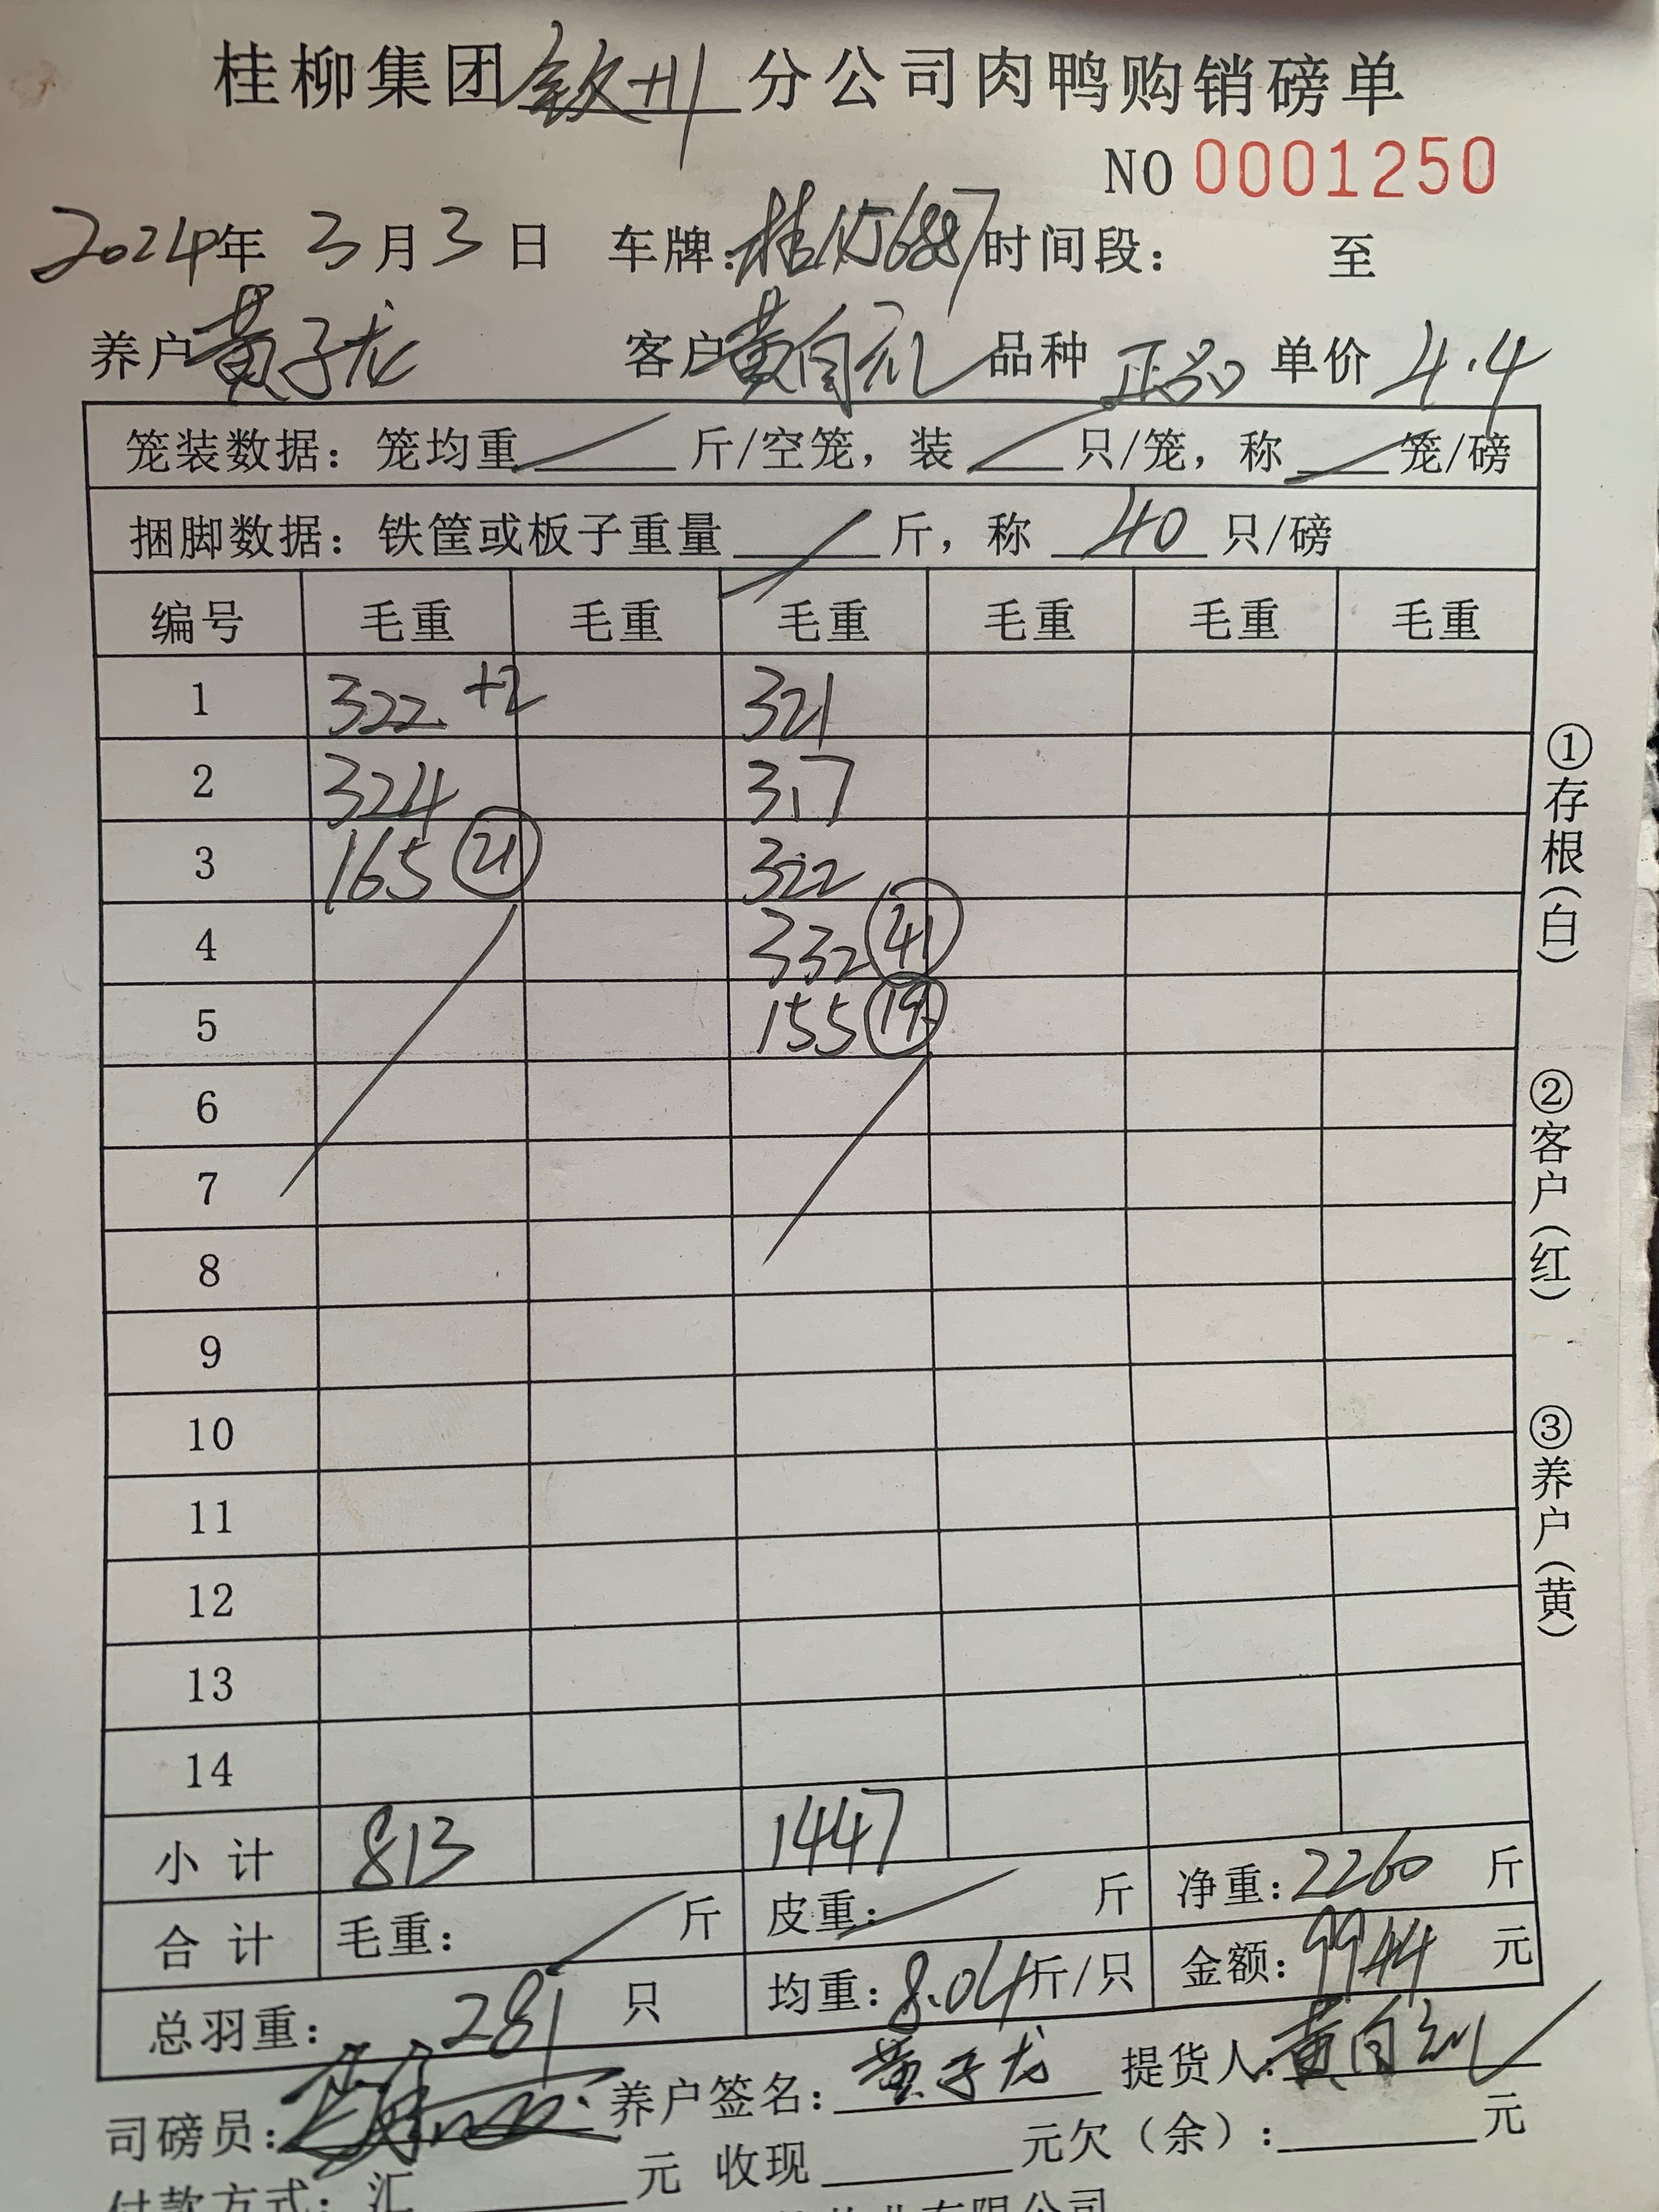 桂柳集团钦州分公司肉鸭购销磅单
NO 0001250
2024年 3月3日 车牌:桂 时间段: 至
养户黄子龙 客户黄自 品种 正品 单价 4.4
笼装数据: 笼均重 斤/空笼, 装 只/笼, 称 笼/磅
捆脚数据: 铁筐或板子重量 斤, 称 40 只/磅
编号 毛重 毛重 毛重 毛重 毛重 毛重
1 322 +2 321
2 324 317
3 165 21 322
4 332 41
5 155 19
6
7
8
9
10
11
12
13
14
小计 813 1447
合计 毛重: 斤 皮重: 斤 净重: 2260 斤
总羽重: 281 只 均重: 8.04斤/只 金额: 9944 元
司磅员: 养户签名: 黄子龙 提货人: 黄自
付款方式: 汇 元 收现 元欠(余): 元
业有限公司
①存根(白)
②客户(红)
③养户(黄)